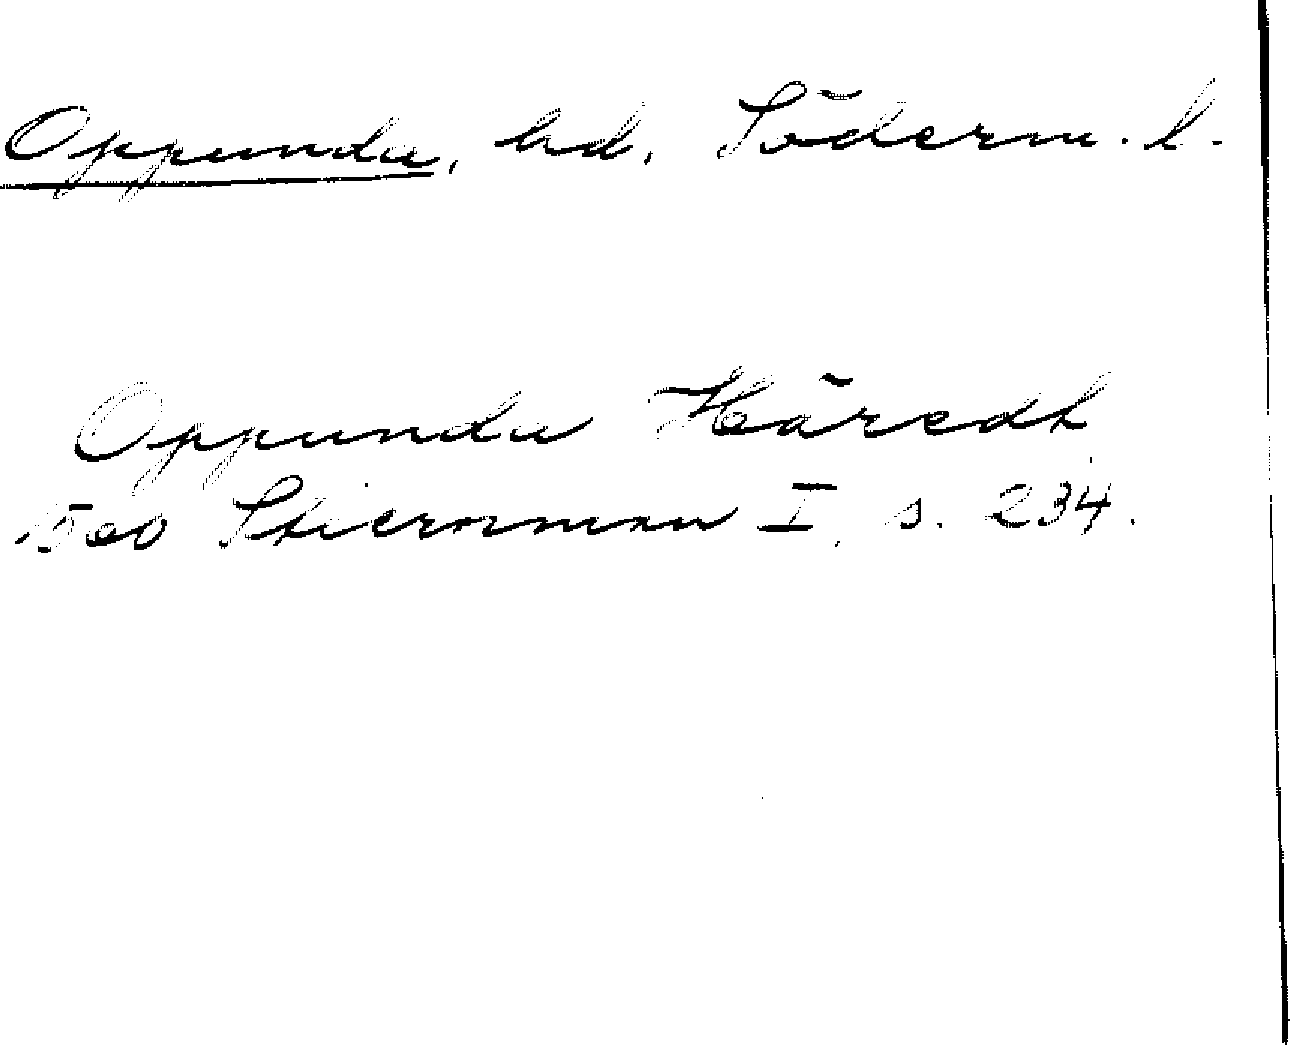 Oppunda, hd. Söderm. l.
Oppunda Häredt
1500 Stiernman I, s. 234.